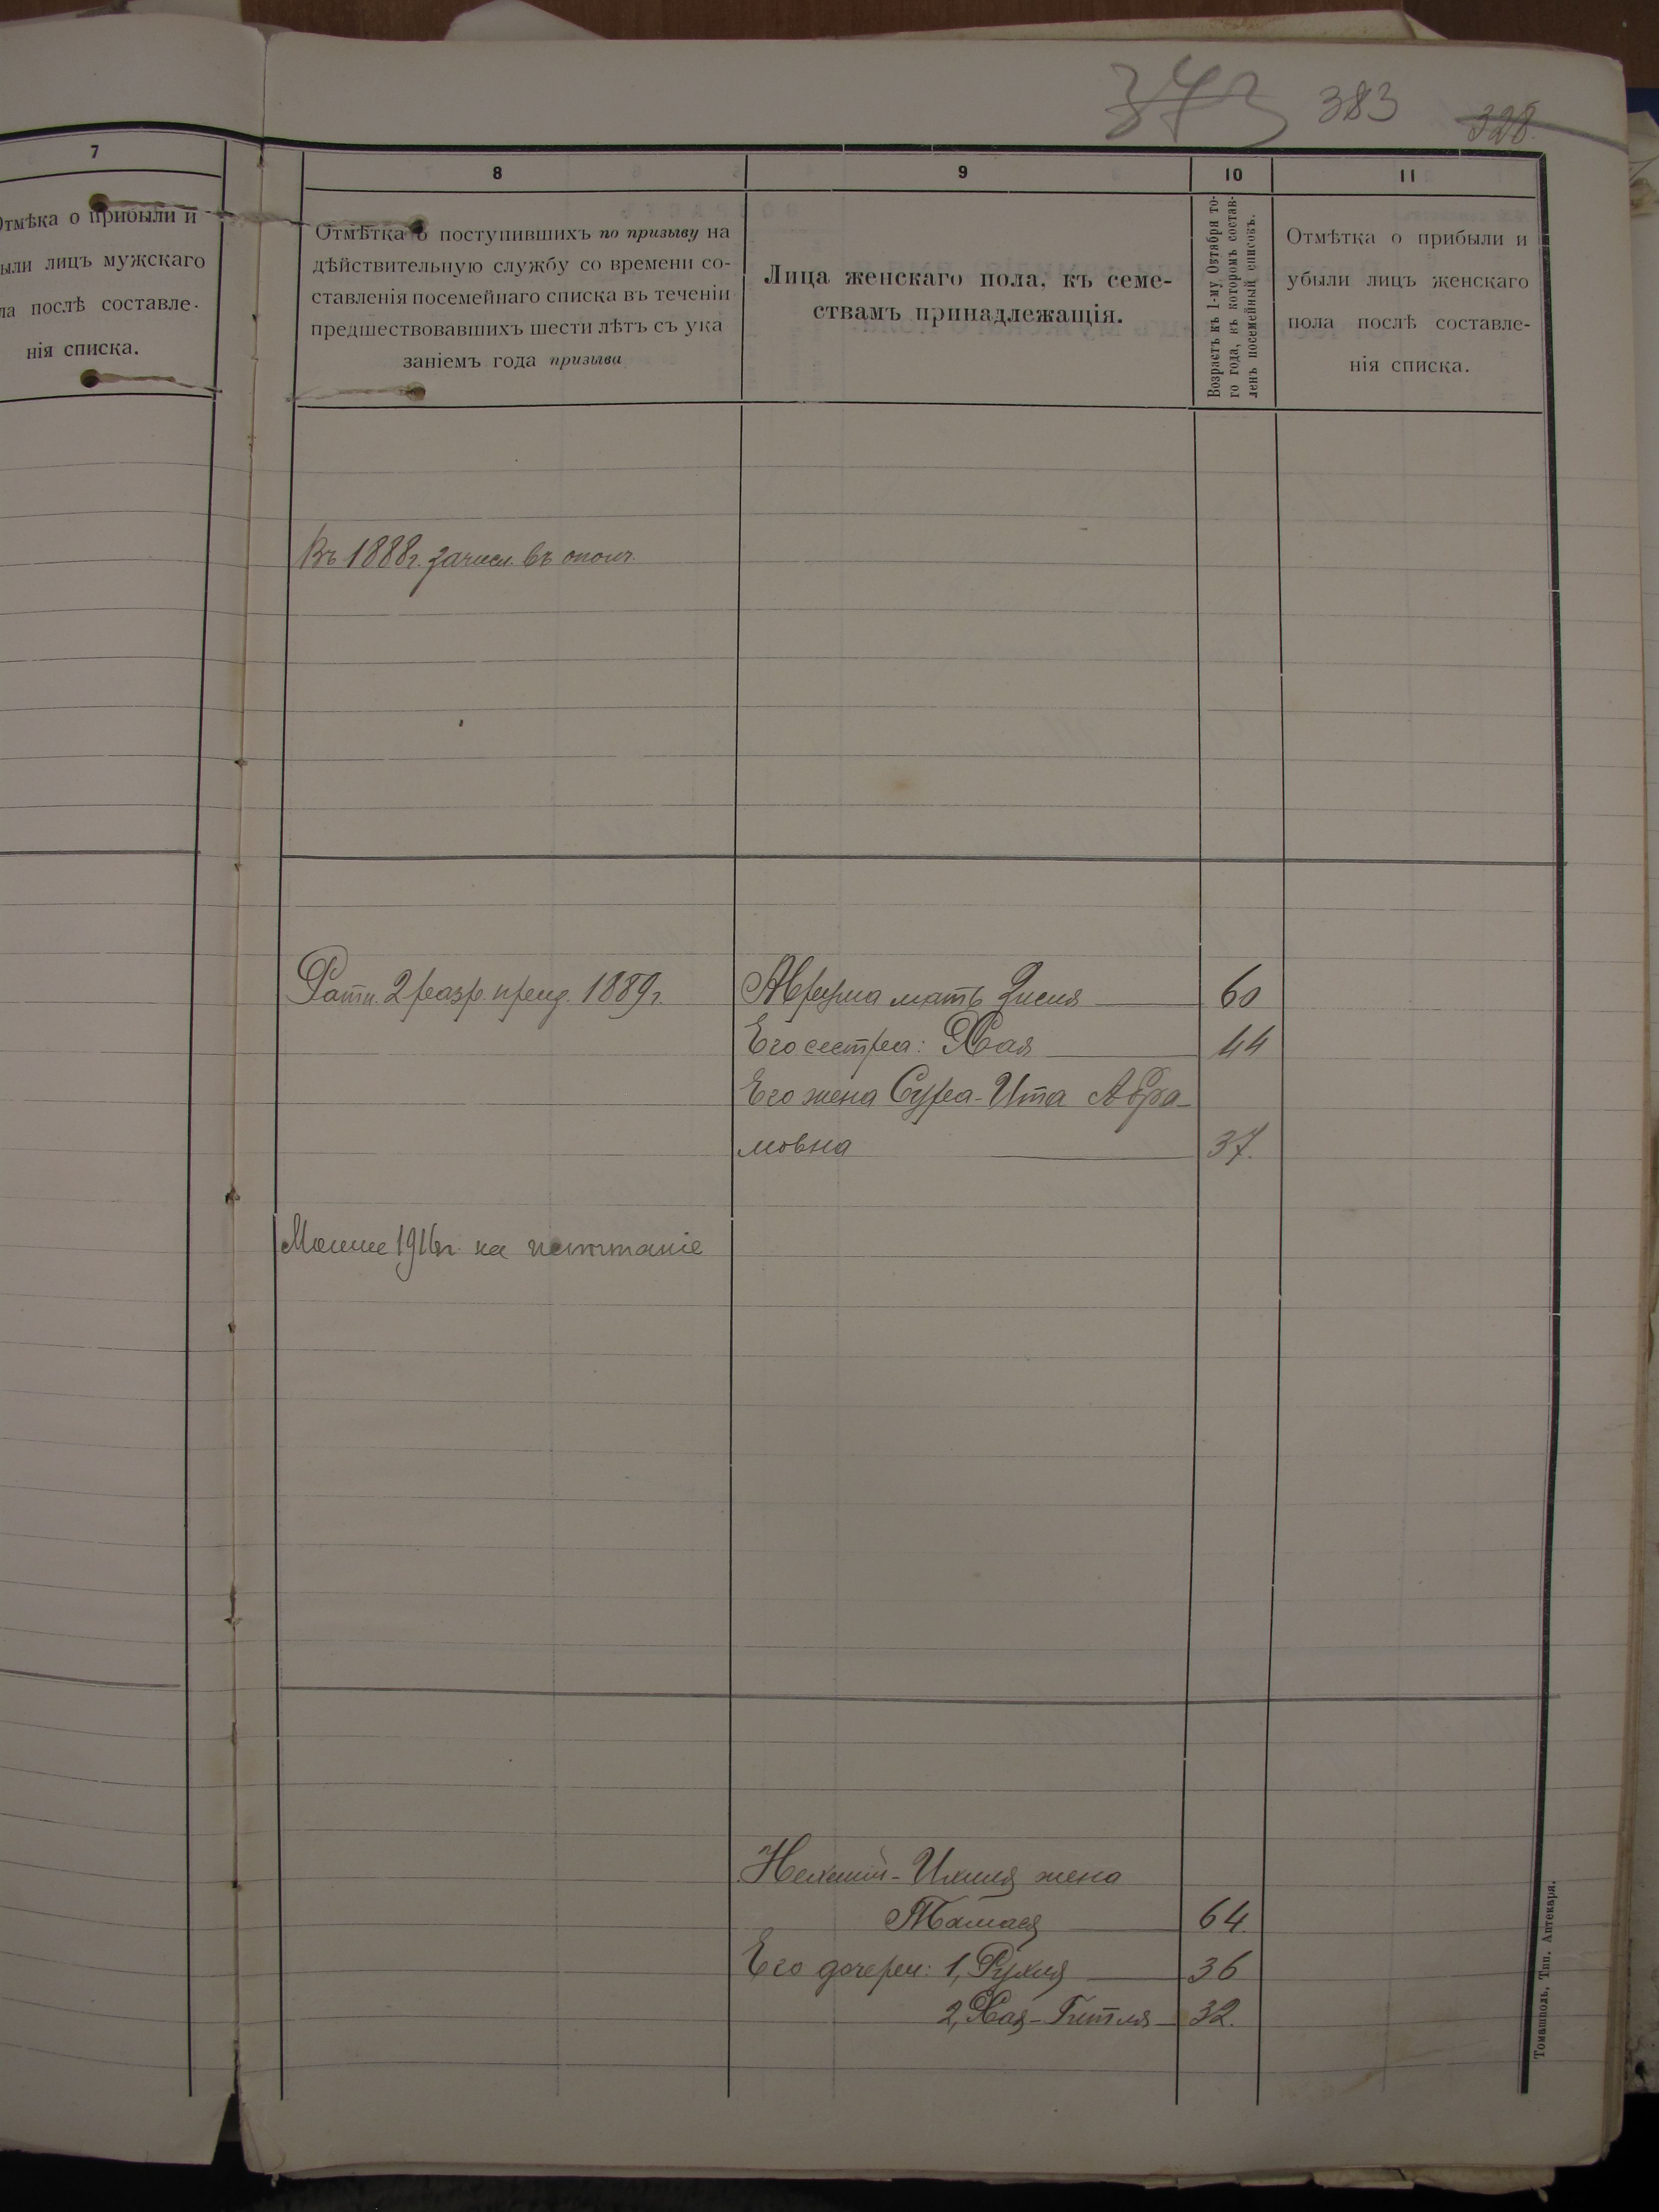 373 383 328
7
Отмѣка о прибыли и
ыли лицъ мужскаго
ла послѣ составле-
нія списка.
8
Отмѣтка о поступившихъ по призыву на
дѣйствительную службу со времени со-
ставленія посемейнаго списка въ теченіи
предшествовавшихъ шести лѣтъ съ ука
заніемъ года призыва
9
Лица женскаго пола, къ семе-
ствамъ принадлежащія.
10
Возрастъ къ 1-му Октября то-
го года, въ которомъ состав-
ленъ посемейный списокъ.
11
Отмѣтка о прибыли и
убыли лицъ женскаго
пола послѣ составле-
нія списка.
Въ 1888г. зачисл. въ ополч.
Ратн. 2 разр. 1889г.
Аврума мать 60
Его сестра: Хая 44
Его жена Сура-Ита Абра-
мовна 37.
1916г. на испытаніе
жена
64.
Его дочери: 1, Рухля 36
2, Хая-Гитля 32.
Томашполь, Тип. Аптекаря.